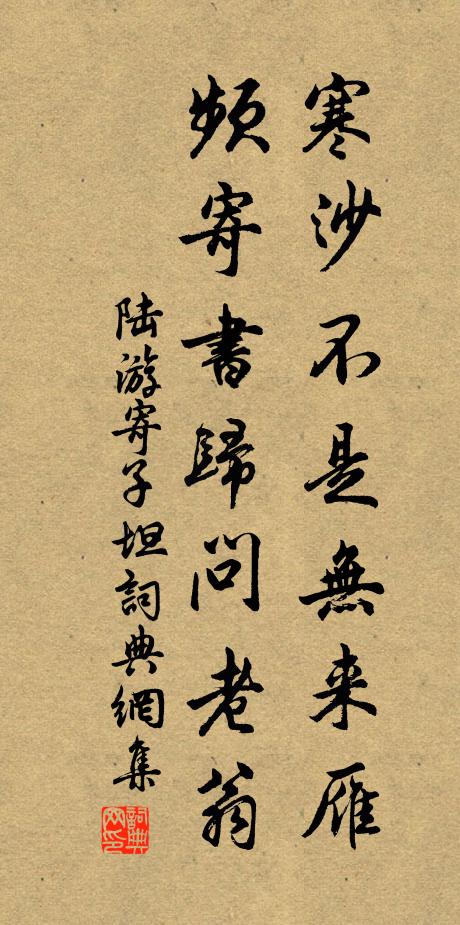 寒沙不是無来雁
頻寄書歸問老翁
陸游寄子坦詞典網集
詞典网印